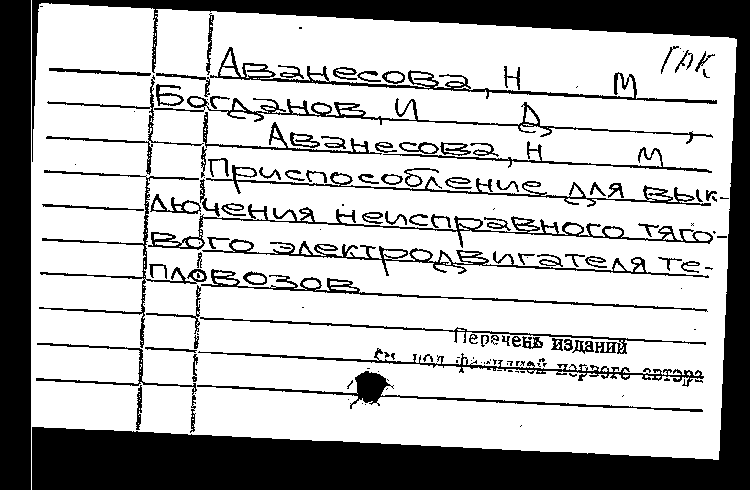 ГРК
Аванесова, Н М
Богданов, И Д ,
Аванесова, Н М
Приспособление для вык-
лючения неисправного тяго-
вого электродвигателя те-
пловозов
Перечень изданий
см. под фамилией первого автора